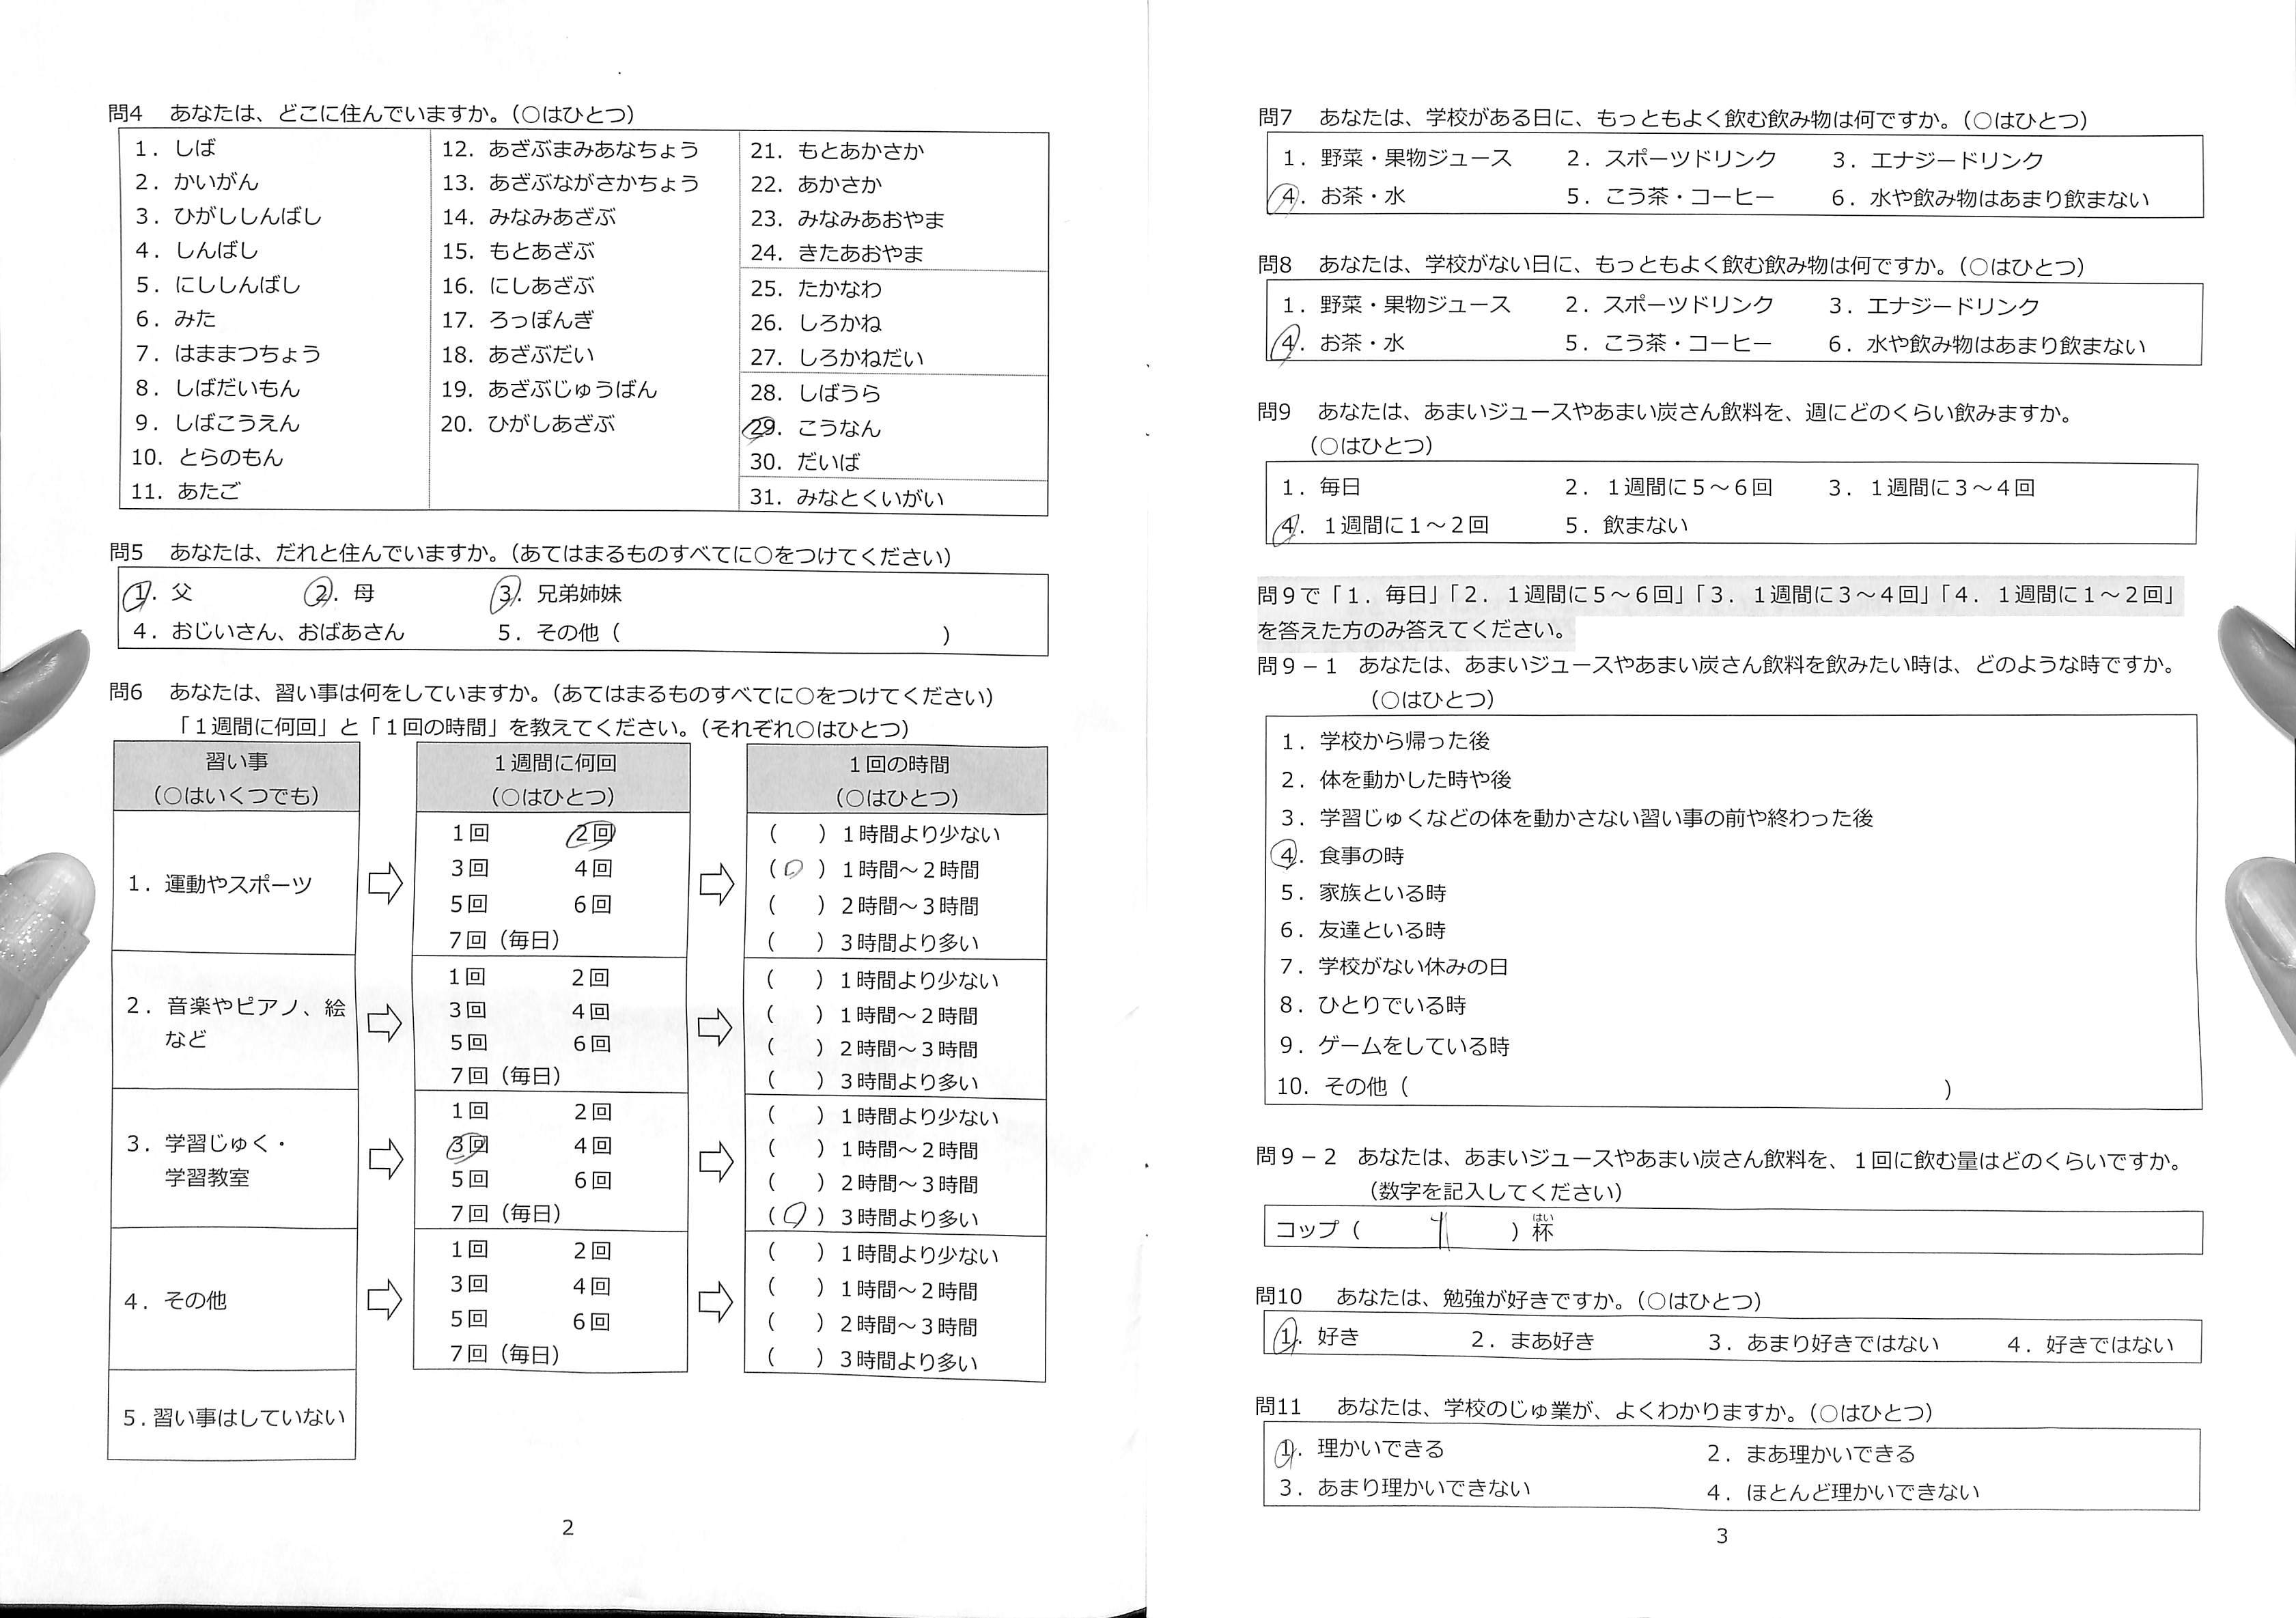 問4　あなたは、どこに住んでいますか。（○はひとつ）
1．しば
2．かいがん
3．ひがししんばし
4．しんばし
5．にししんばし
6．みた
7．はままつちょう
8．しばだいもん
9．しばこうえん
10．とらのもん
11．あたご
12．あざぶまみあなちょう
13．あざぶながさかちょう
14．みなみあざぶ
15．もとあざぶ
16．にしあざぶ
17．ろっぽんぎ
18．あざぶだい
19．あざぶじゅうばん
20．ひがしあざぶ
21．もとあかさか
22．あかさか
23．みなみあおやま
24．きたあおやま
25．たかなわ
26．しろかね
27．しろかねだい
28．しばうら
29．こうなん
30．だいば
31．みなとくいがい
問5　あなたは、だれと住んでいますか。（あてはまるものすべてに○をつけてください）
1．父　2．母　3．兄弟姉妹
4．おじいさん、おばあさん　5．その他（　）
問6　あなたは、習い事は何をしていますか。（あてはまるものすべてに○をつけてください）
「１週間に何回」と「１回の時間」を教えてください。（それぞれ○はひとつ）
習い事
（○はいくつでも）
１週間に何回
（○はひとつ）
１回の時間
（○はひとつ）
1．運動やスポーツ
1回　2回
3回　4回
5回　6回
7回（毎日）
（　）１時間より少ない
（○）１時間～２時間
（　）２時間～３時間
（　）３時間より多い
2．音楽やピアノ、絵
など
1回　2回
3回　4回
5回　6回
7回（毎日）
（　）１時間より少ない
（　）１時間～２時間
（　）２時間～３時間
（　）３時間より多い
3．学習じゅく・
学習教室
1回　2回
3回　4回
5回　6回
7回（毎日）
（　）１時間より少ない
（　）１時間～２時間
（　）２時間～３時間
（○）３時間より多い
4．その他
1回　2回
3回　4回
5回　6回
7回（毎日）
（　）１時間より少ない
（　）１時間～２時間
（　）２時間～３時間
（　）３時間より多い
5．習い事はしていない
2
問7　あなたは、学校がある日に、もっともよく飲む飲み物は何ですか。（○はひとつ）
1．野菜・果物ジュース　2．スポーツドリンク　3．エナジードリンク
4．お茶・水　5．こう茶・コーヒー　6．水や飲み物はあまり飲まない
問8　あなたは、学校がない日に、もっともよく飲む飲み物は何ですか。（○はひとつ）
1．野菜・果物ジュース　2．スポーツドリンク　3．エナジードリンク
4．お茶・水　5．こう茶・コーヒー　6．水や飲み物はあまり飲まない
問9　あなたは、あまいジュースやあまい炭さん飲料を、週にどのくらい飲みますか。
（○はひとつ）
1．毎日　2．１週間に５～６回　3．１週間に３～４回
4．１週間に１～２回　5．飲まない
問９で「１．毎日」「２．１週間に５～６回」「３．１週間に３～４回」「４．１週間に１～２回」
を答えた方のみ答えてください。
問９－１　あなたは、あまいジュースやあまい炭さん飲料を飲みたい時は、どのような時ですか。
（○はひとつ）
1．学校から帰った後
2．体を動かした時や後
3．学習じゅくなどの体を動かさない習い事の前や終わった後
4．食事の時
5．家族といる時
6．友達といる時
7．学校がない休みの日
8．ひとりでいる時
9．ゲームをしている時
10．その他（　）
問９－２　あなたは、あまいジュースやあまい炭さん飲料を、１回に飲む量はどのくらいですか。
（数字を記入してください）
コップ（　1　）杯
はい
問10　あなたは、勉強が好きですか。（○はひとつ）
1．好き　2．まあ好き　3．あまり好きではない　4．好きではない
問11　あなたは、学校のじゅ業が、よくわかりますか。（○はひとつ）
1．理かいできる　2．まあ理かいできる
3．あまり理かいできない　4．ほとんど理かいできない
3